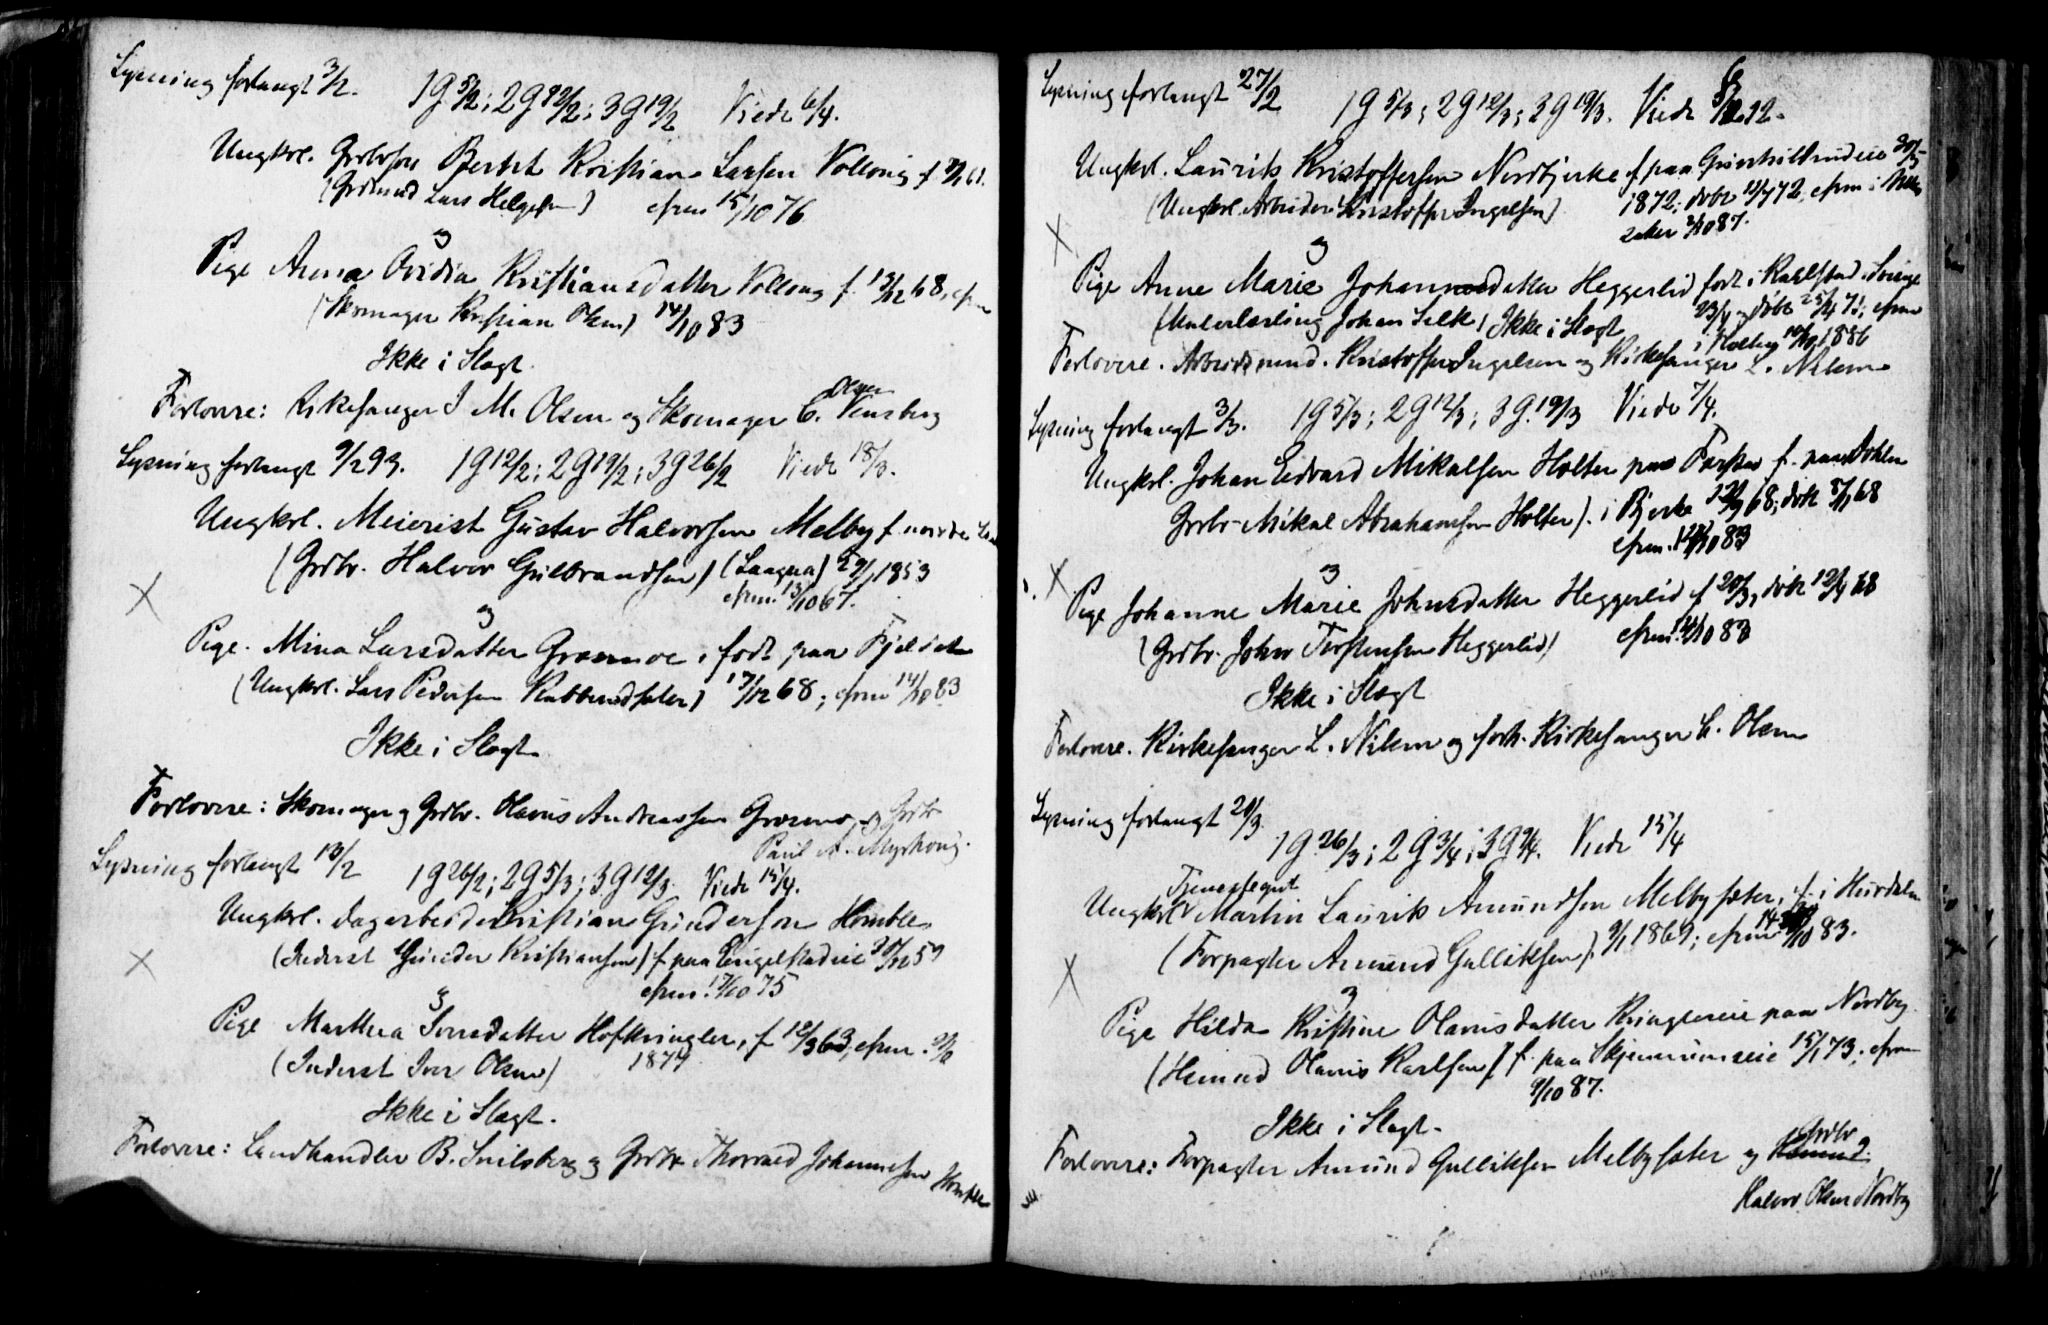 Lysning forlangt 3/2. 1 g 5/2; 2 g 12/2; 3 g 19/2 Viede 6/4.
Ungkrl. Grdbrsøn Berthl Kristian Larsen Vollong f
(Grdmand Lars Helgesen) cfrm 15/10 76
og
Pige Anna Ovidia Kristiansdatter Vollong f. 13/12 68, cfrm
(Skomager Kristian Olsen) 14/10 83
Ikke i Slægt.
Forlovere: Kirkesanger J M. Olsen og Skomager C. Olsen Tensberg
Lysning forlangt 9/2 93. 1 g 12/2; 2 g 19/2; 3 g 26/2 Viede 18/3.
Ungkrl. Meierist Gustav Halvorsen Melby f nordre
(Grdbr. Halvor Gulbrandsen) (Laagna) 29/1 1853
cfrm. 13/10 67.
og
Pige. Mina Larsdatter Græsmoe, født paa
(Ungkrl. Lars Pedersen Rabberudsæter) 17/12 68; cfrm 14/10 83
Ikke i Slægt
Forlovere: Skomager og Grdbr. Olavus Andreassen Græsmo og Grdbr
Paul A. Myrhoug.
Lysning forlangt 13/2 1 g 26/2; 2 g 5/3; 3 g 12/3. Viede 15/4.
Ungkrl. Dagarbeider Kristian Gundersen Homble
(Inderst Gunder Kristiansen) f paa Engelstadeie 59
cfrm. 17/10 75
og
Pige Marthea Iversdatter Hofkringler, f 12/3 63, cfrm.
(Inderst Iver Olsen) 1877
Ikke i Slægt.
Forlovere: Landhandler B. Snilsberg og Grdbr Thorvald Johannesen Homble

Lysning forlangt 27/2 1 g 5/3; 2 g 12/3; 3 g 19/3. Viede
Ungkrl. Laurits Kristoffersen Nordbjerke f paa
(Ungkrl. Arbeider Kristoffer Ingelsen) 1872; døbt 72, cfrm i
87.
og
Pige Anne Marie Johannesdatter Heggerlid født i Karlstad Sverige
(Murerlærling Johan Silk) Ikke i Slægt døbt 71; cfrm
1886
Forlovere. Arbeidsmand. Kristoffer Ingelsen og Kirkesanger L. Nilsen
Lysning forlangt 3/3. 1 g 5/3; 2 g 12/3; 3 g. 19/3 Viede 7/4.
Ungkrl. Johan Edvard Mikalsen Holter paa
Grdbr Mikal Abrahamsen Holter). i Bjerke 68; døbt 68
cfrm. 14/10 83
og
Pige Johanne Marie Johnsdatter Heggerlid f 20/3, døbt 12/4 68
(Grdbr. John Torstensen Heggerlid) cfrm. 14/10 83
Ikke i Slægt
Forlovere. Kirkesanger L. Nilsen og forh. Kirkesanger C. Olsen
Lysning forlangt 21/3.
1 g. 26/3; 2 g 3/4; 3 g 9/4. Viede 15/4
Tjenestegut
Ungkrl Martin Laurits Amundsen Melbysæter, f. i Hurdalen
(Forpagter Amund Gulliksen). 9/1 1869; cfrm 14/10 83.
og
Pige Hilda Kristine Olavusdatter Kringlereie paa Nordby
(Husmand Olavus Karlsen) f. paa Skjennumseie 15/1 73; cfrm
9/10 87.
Ikke i Slægt.
Forlovere: Forpagter Amund Gulliksen Melbysæter og Grdbr
Halvor Olsen Nordby